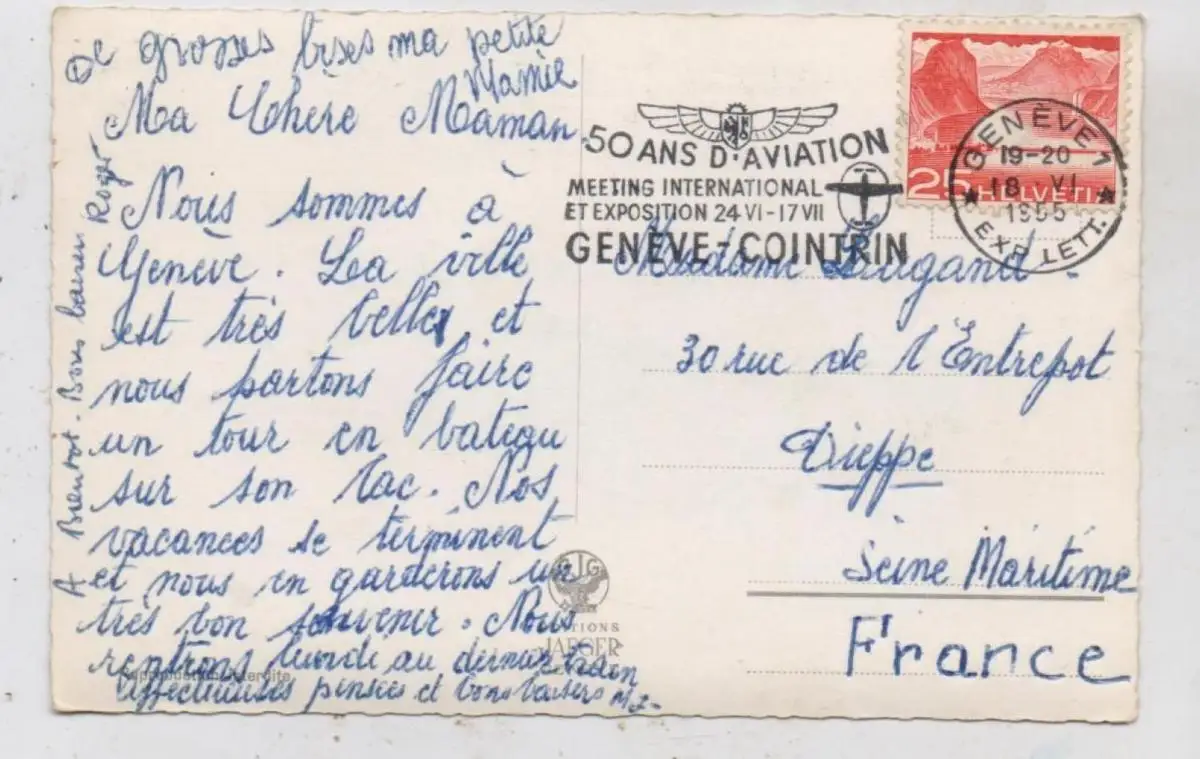 De grosses bises ma petite
Mamie
Ma Chère Maman
Nous sommes à
Genève. La ville
est très belle et
nous partons faire
un tour en bateau
sur son lac. Nos
vacances se terminent
et nous en garderons un
très bon souvenir. Nous
rentrons lundi au dernier train
affectueuses pensées et bons baisers
A Bientôt - Bons baisers Roger
50 ANS D'AVIATION
MEETING INTERNATIONAL
ET EXPOSITION 24 VI - 17 VII
GENÈVE-COINTRIN
GENÈVE 1
19-20
18 VI
1955
EXP. LETT.
25 HELVETIA
Madame
30 rue de l'Entrepot
Dieppe
Seine Maritime
France
JAEGER